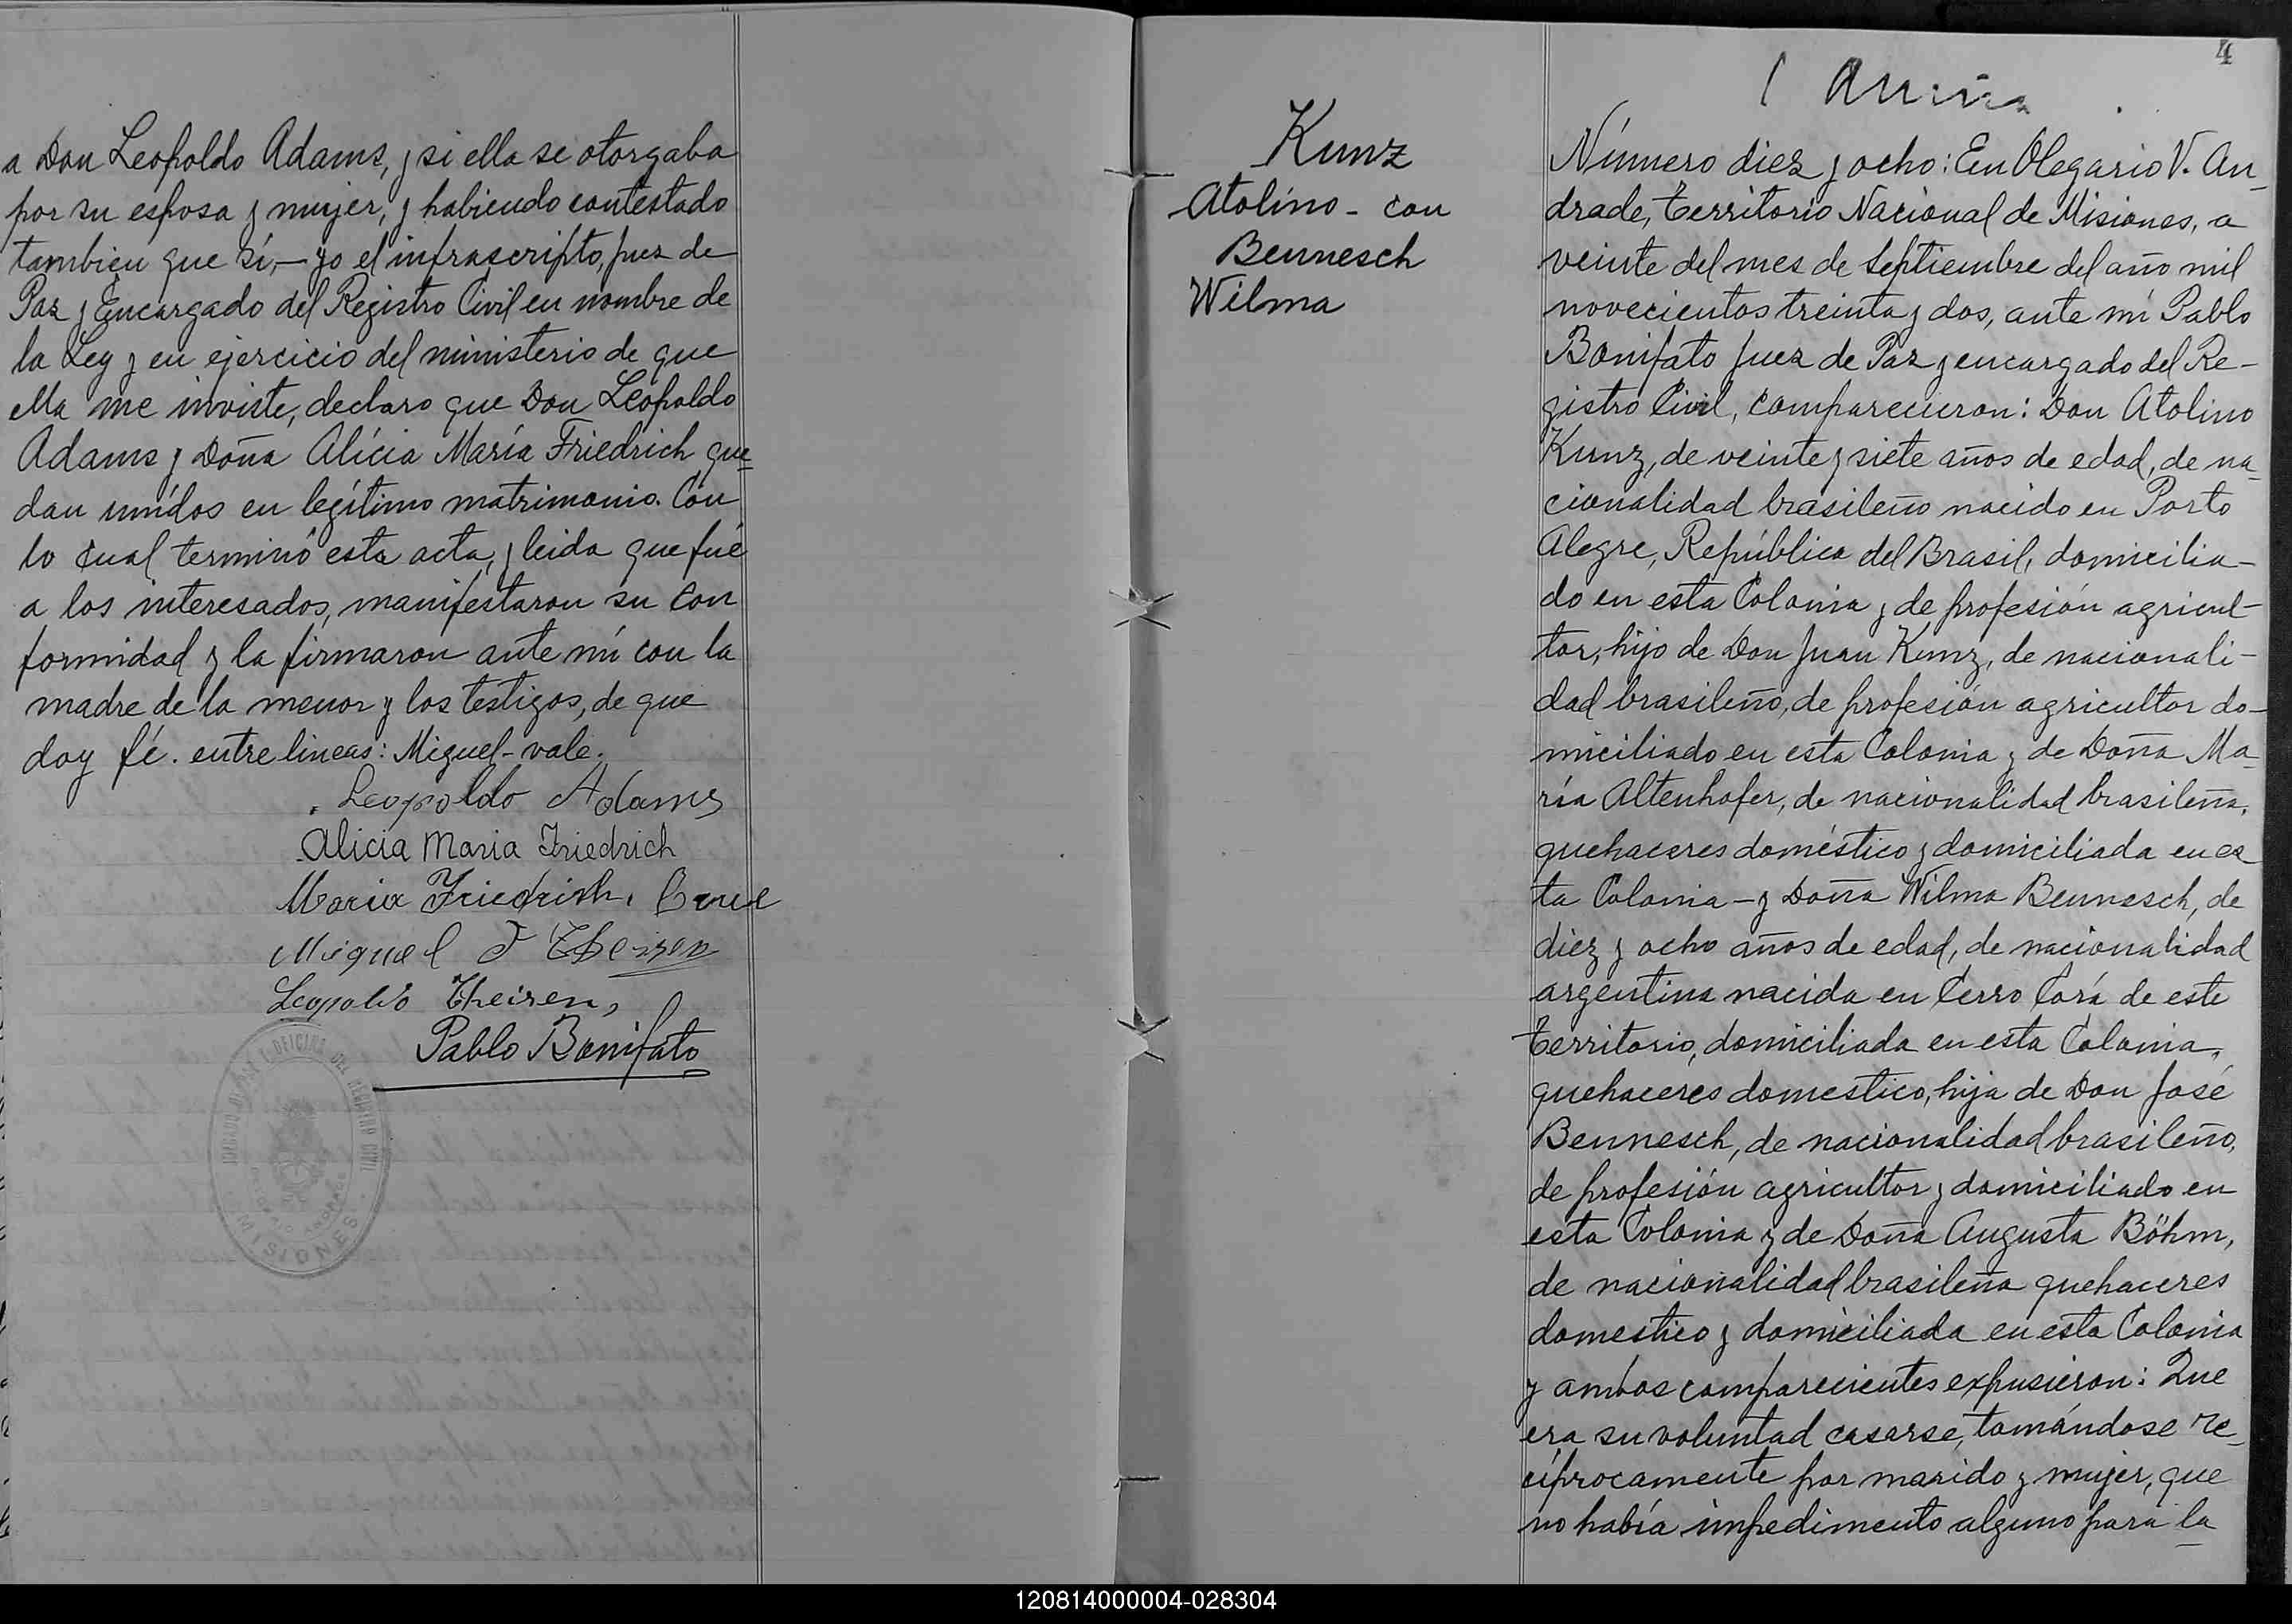 a Don Leopoldo Adams, y si ella se otorgaba
por su esposa y mujer, y habiendo contestado
tambien que sí,- yo el infrascripto, juez de
Paz y Encargado del Registro Civil en nombre de
la Ley y en ejercicio del ministerio de que
ella me inviste, declaro que Don Leopoldo
Adams y Doña Alícia María Friedrich que-
dan unídos en legítimo matrimonio. Con
lo cual terminó esta acta, y leida que fué
a los interesados, manifestaron su con
formidad y la firmaron ante mí con la
madre de la menor y los testigos, de que
doy fé. entre lineas: Miguel-vale.
Leopoldo Adams
Alicia Maria Friedrich
Maria Friedrich
Miguel J Theisen
Leopoldo Theisen,
Pablo Bonifato
MISIONES
Kunz
Atolino - con
Bennesch
Wilma
4
Número diez y ocho: En Olegario V. An-
drade, Territorio Nacional de Misiones, a
veinte del mes de Septiembre del año mil
novecientos treinta y dos, ante mí Pablo
Bonifato Juez de Paz y encargado del Re-
gistro Civil, comparecieron: Don Atolino
Kunz, de veinte y siete años de edad, de na-
cionalidad brasileño nacido en Porto
Alegre, República del Brasil, domicilia-
do en esta Colonia y de profesión agricul-
tor, hijo de Don Juan Kunz, de nacionali-
dad brasileño, de profesión agricultor do-
miciliado en esta Colonia y de Doña Ma-
ría Altenhofer, de nacionalidad brasileña,
quehaceres doméstico y domiciliada en es-
ta Colonia - y Doña Wilma Bennesch, de
diez y ocho años de edad, de nacionalidad
argentina nacida en Cerro Corá de este
Territorio, domiciliada en esta Colonia,
quehaceres domestico, hija de Don José
Bennesch, de nacionalidad brasileño,
de profesión agricultor y domiciliado en
esta Colonia y de Doña Augusta Böhm,
de nacionalidad brasileña quehaceres
domestico y domiciliada en esta Colonia
y ambos comparecientes expusieron: Que
era su voluntad casarse, tomándose re-
cíprocamente por marido y mujer, que
no había impedimento alguno para la
120814000004-028304